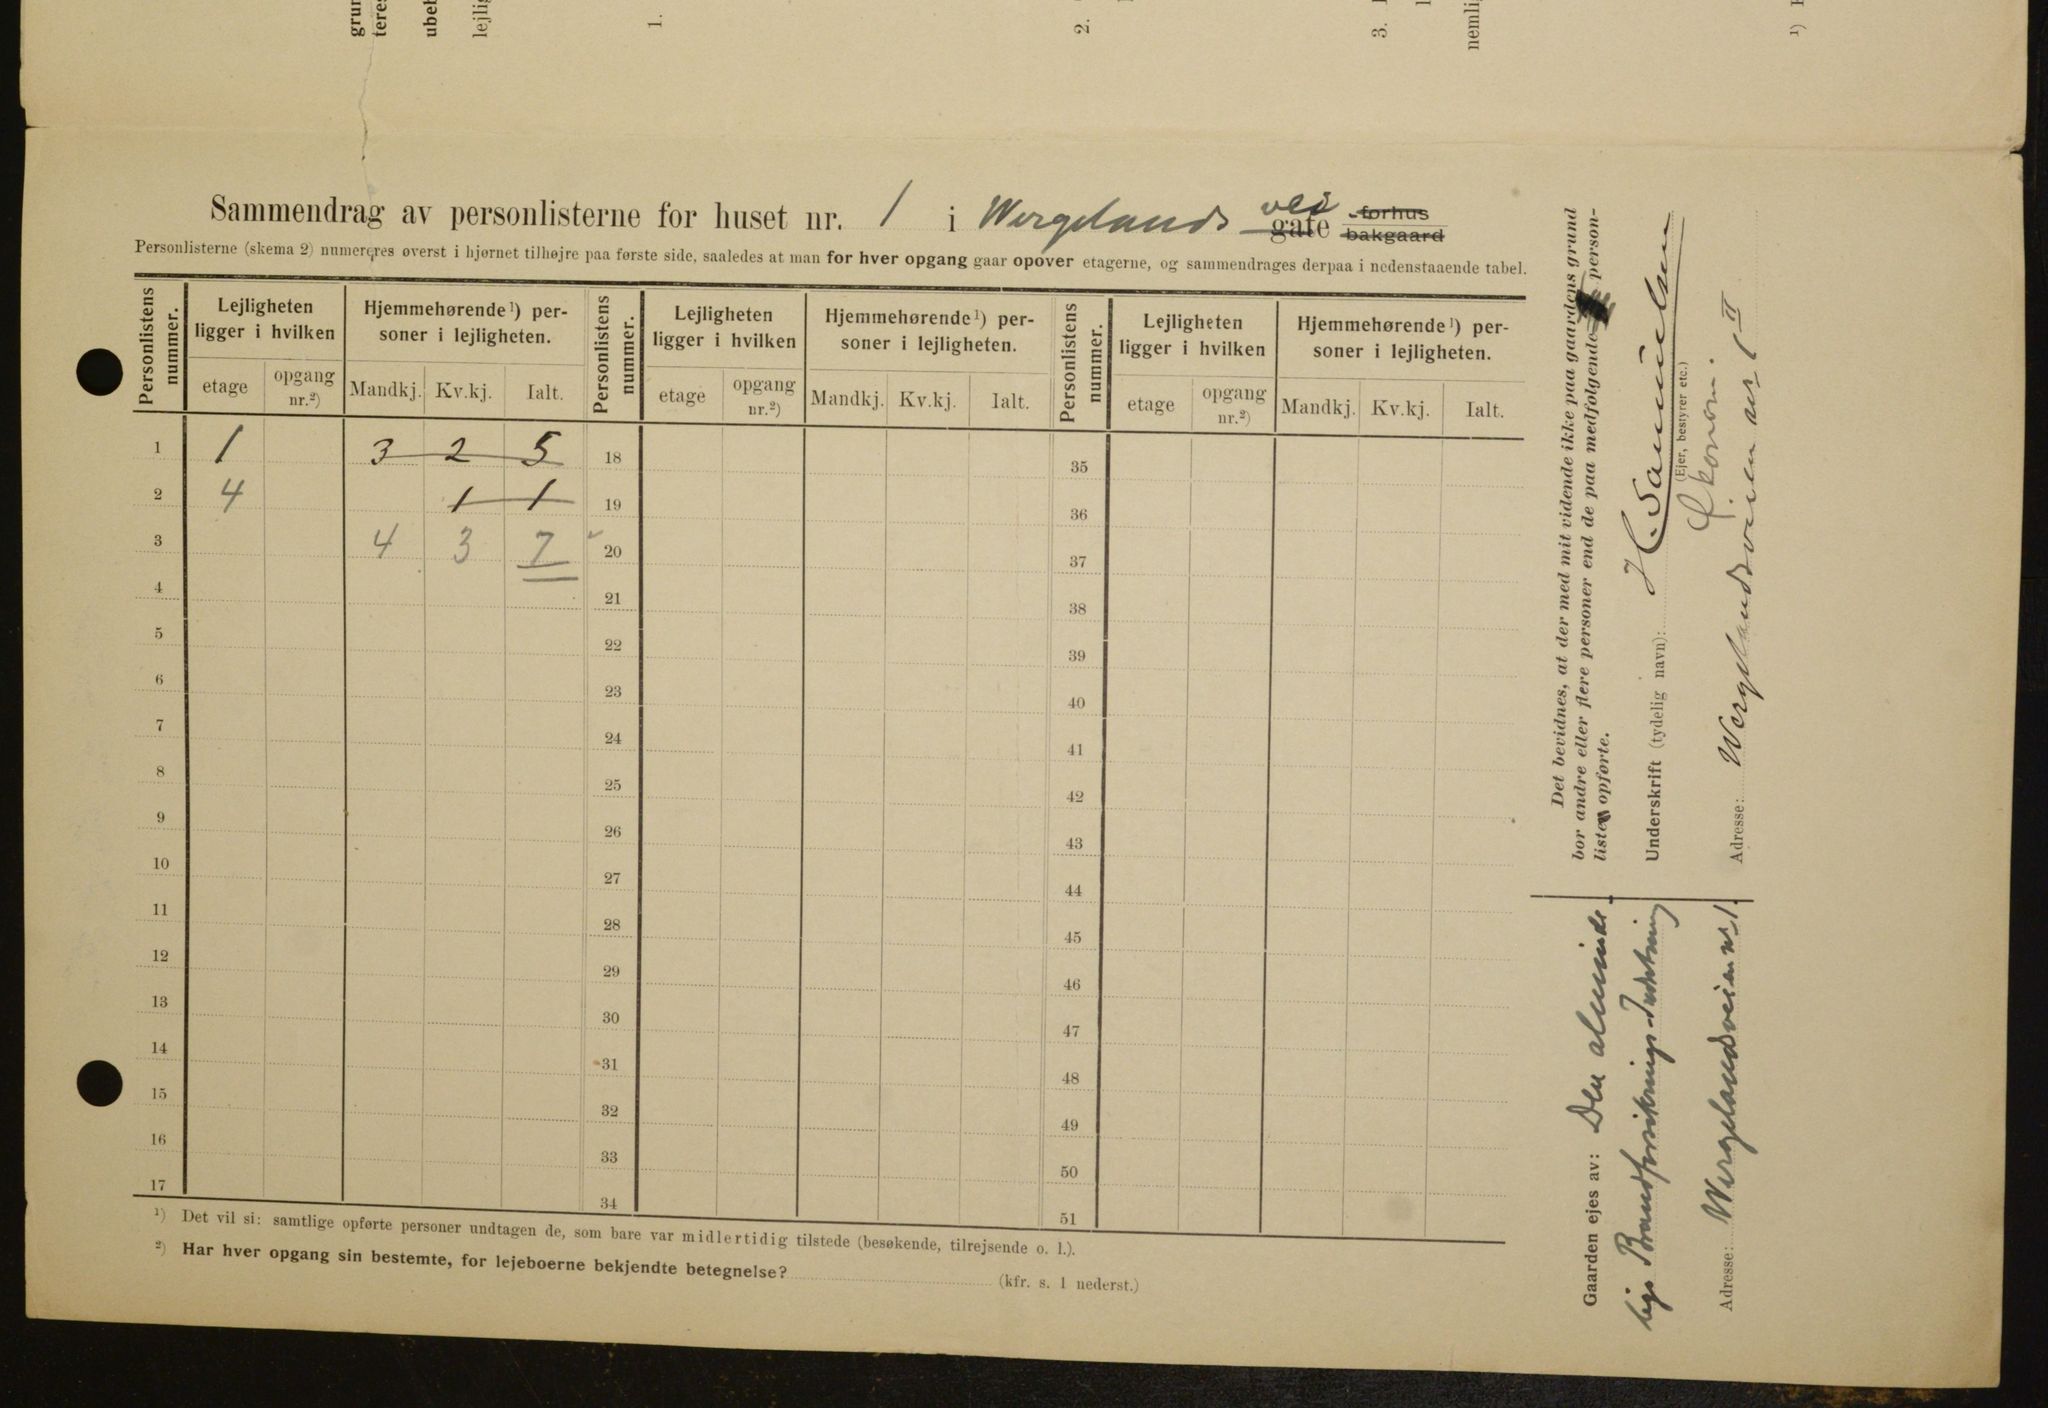 grun
teres
ubeb
lejlig
1.
2.
3.
nemlig
¹)
Sammendrag av personlisterne for huset nr. 1 i Wergelands vei gate forhus bakgaard
Personlisterne (skema 2) numereres øverst i hjørnet tilhøjre paa første side, saaledes at man for hver opgang gaar opover etagerne, og sammendrages derpaa i nedenstaaende tabel.
Personlistens nummer. Lejligheten ligger i hvilken Hjemmehørende¹) personer i lejligheten. Personlistens nummer. Lejligheten ligger i hvilken Hjemmehørende¹) personer i lejligheten. Personlistens nummer. Lejligheten ligger i hvilken Hjemmehørende¹) personer i lejligheten.
etage opgang nr.²) Mandkj. Kv.kj. Ialt. etage opgang nr.²) Mandkj. Kv.kj. Ialt. etage opgang nr.²) Mandkj. Kv.kj. Ialt.
1 1 3 2 5 18 35
2 4 1 1 19 36
3 4 3 7 20 37
4 21 38
5 22 39
6 23 40
7 24 41
8 25 42
9 26 43
10 27 44
11 28 45
12 29 46
13 30 47
14 31 48
15 32 49
16 33 50
17 34 51
¹) Det vil si: samtlige opførte personer undtagen de, som bare var midlertidig tilstede (besøkende, tilrejsende o. l.).
²) Har hver opgang sin bestemte, for lejeboerne bekjendte betegnelse? (kfr. s. 1 nederst.)
Det bevidnes, at der med mit vidende ikke paa gaardens grund
bor andre eller flere personer end de paa medfølgende personlister
opførte.
Underskrift (tydelig navn): H. Samuelsen
(Ejer, bestyrer etc.)
Økonom.
Adresse: Wergelandsveien nr 1 II
Gaarden ejes av: Den alminde-
lige Brandforsikrings-Indretning
Adresse: Wergelandsveien nr 1.